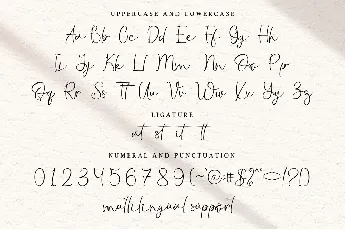 UPPERCASE AND LOWERCASE
Aa Bb Cc Dd Ee Ff Gg Hh
Ii Jj Kk Ll Mm Nn Oo Pp
Qq Rr Ss Tt Uu Vv Ww Xx Yy Zz
LIGATURE
at st it tt
NUMERAL AND PUNCTUATION
0123456789(~'@:#$%
multilingual support